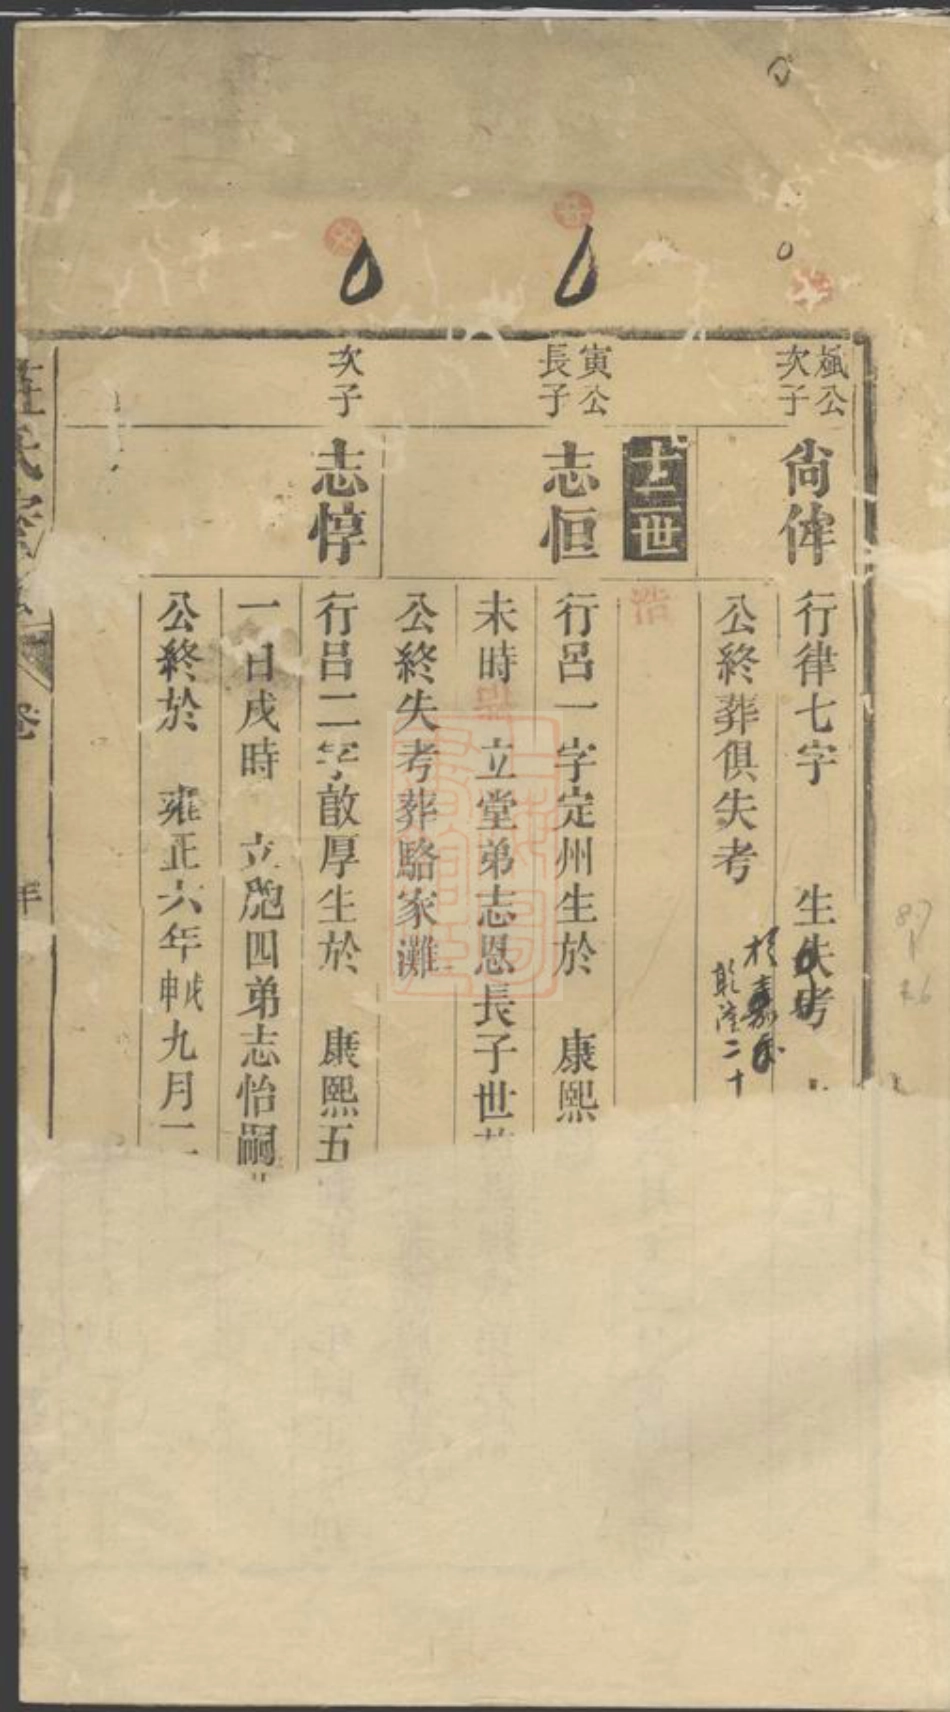 公
次子
尙倖
行律七字 生失考
公終葬俱失考
乾隆二十
十二世
寅公
長子
志恒
行呂一字定州生於 康熙
未時 立堂弟志恩長子世
公終失考葬駱家灘
次子
志惇
行呂二字敵厚生於 康熙五
一日戌時 立胞四弟志怡嗣
公終於 雍正六年申戌九月二
氏
年